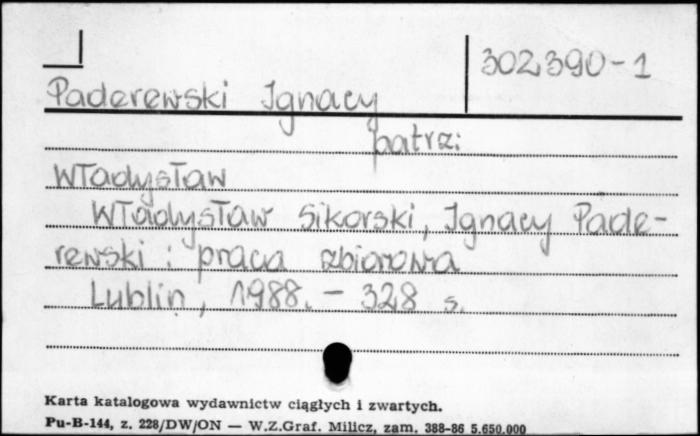 302390-1
Paderewski Ignacy
patrz:
Władysław
Władysław Sikorski, Ignacy Pade-
rewski : praca zbiorowa
Lublin, 1988. - 328 s.
Karta katalogowa wydawnictw ciągłych i zwartych.
Pu-B-144, z. 228/DW/ON — W.Z.Graf. Milicz, zam. 388-86 5.650.000